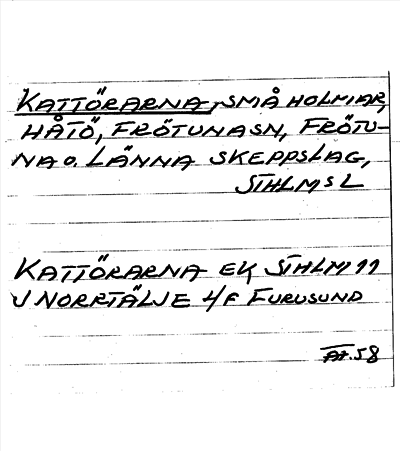 KATTÖRARNA, SMÅ HOLMAR,
HÅTÖ, FRÖTUNA SN, FRÖTU-
NA O. LÄNNA SKEPPSLAG,
STHLMS L
KATTÖRARNA EK, STHLM 11
J NORRTÄLJE 4/F FURUSUND
AT. 58